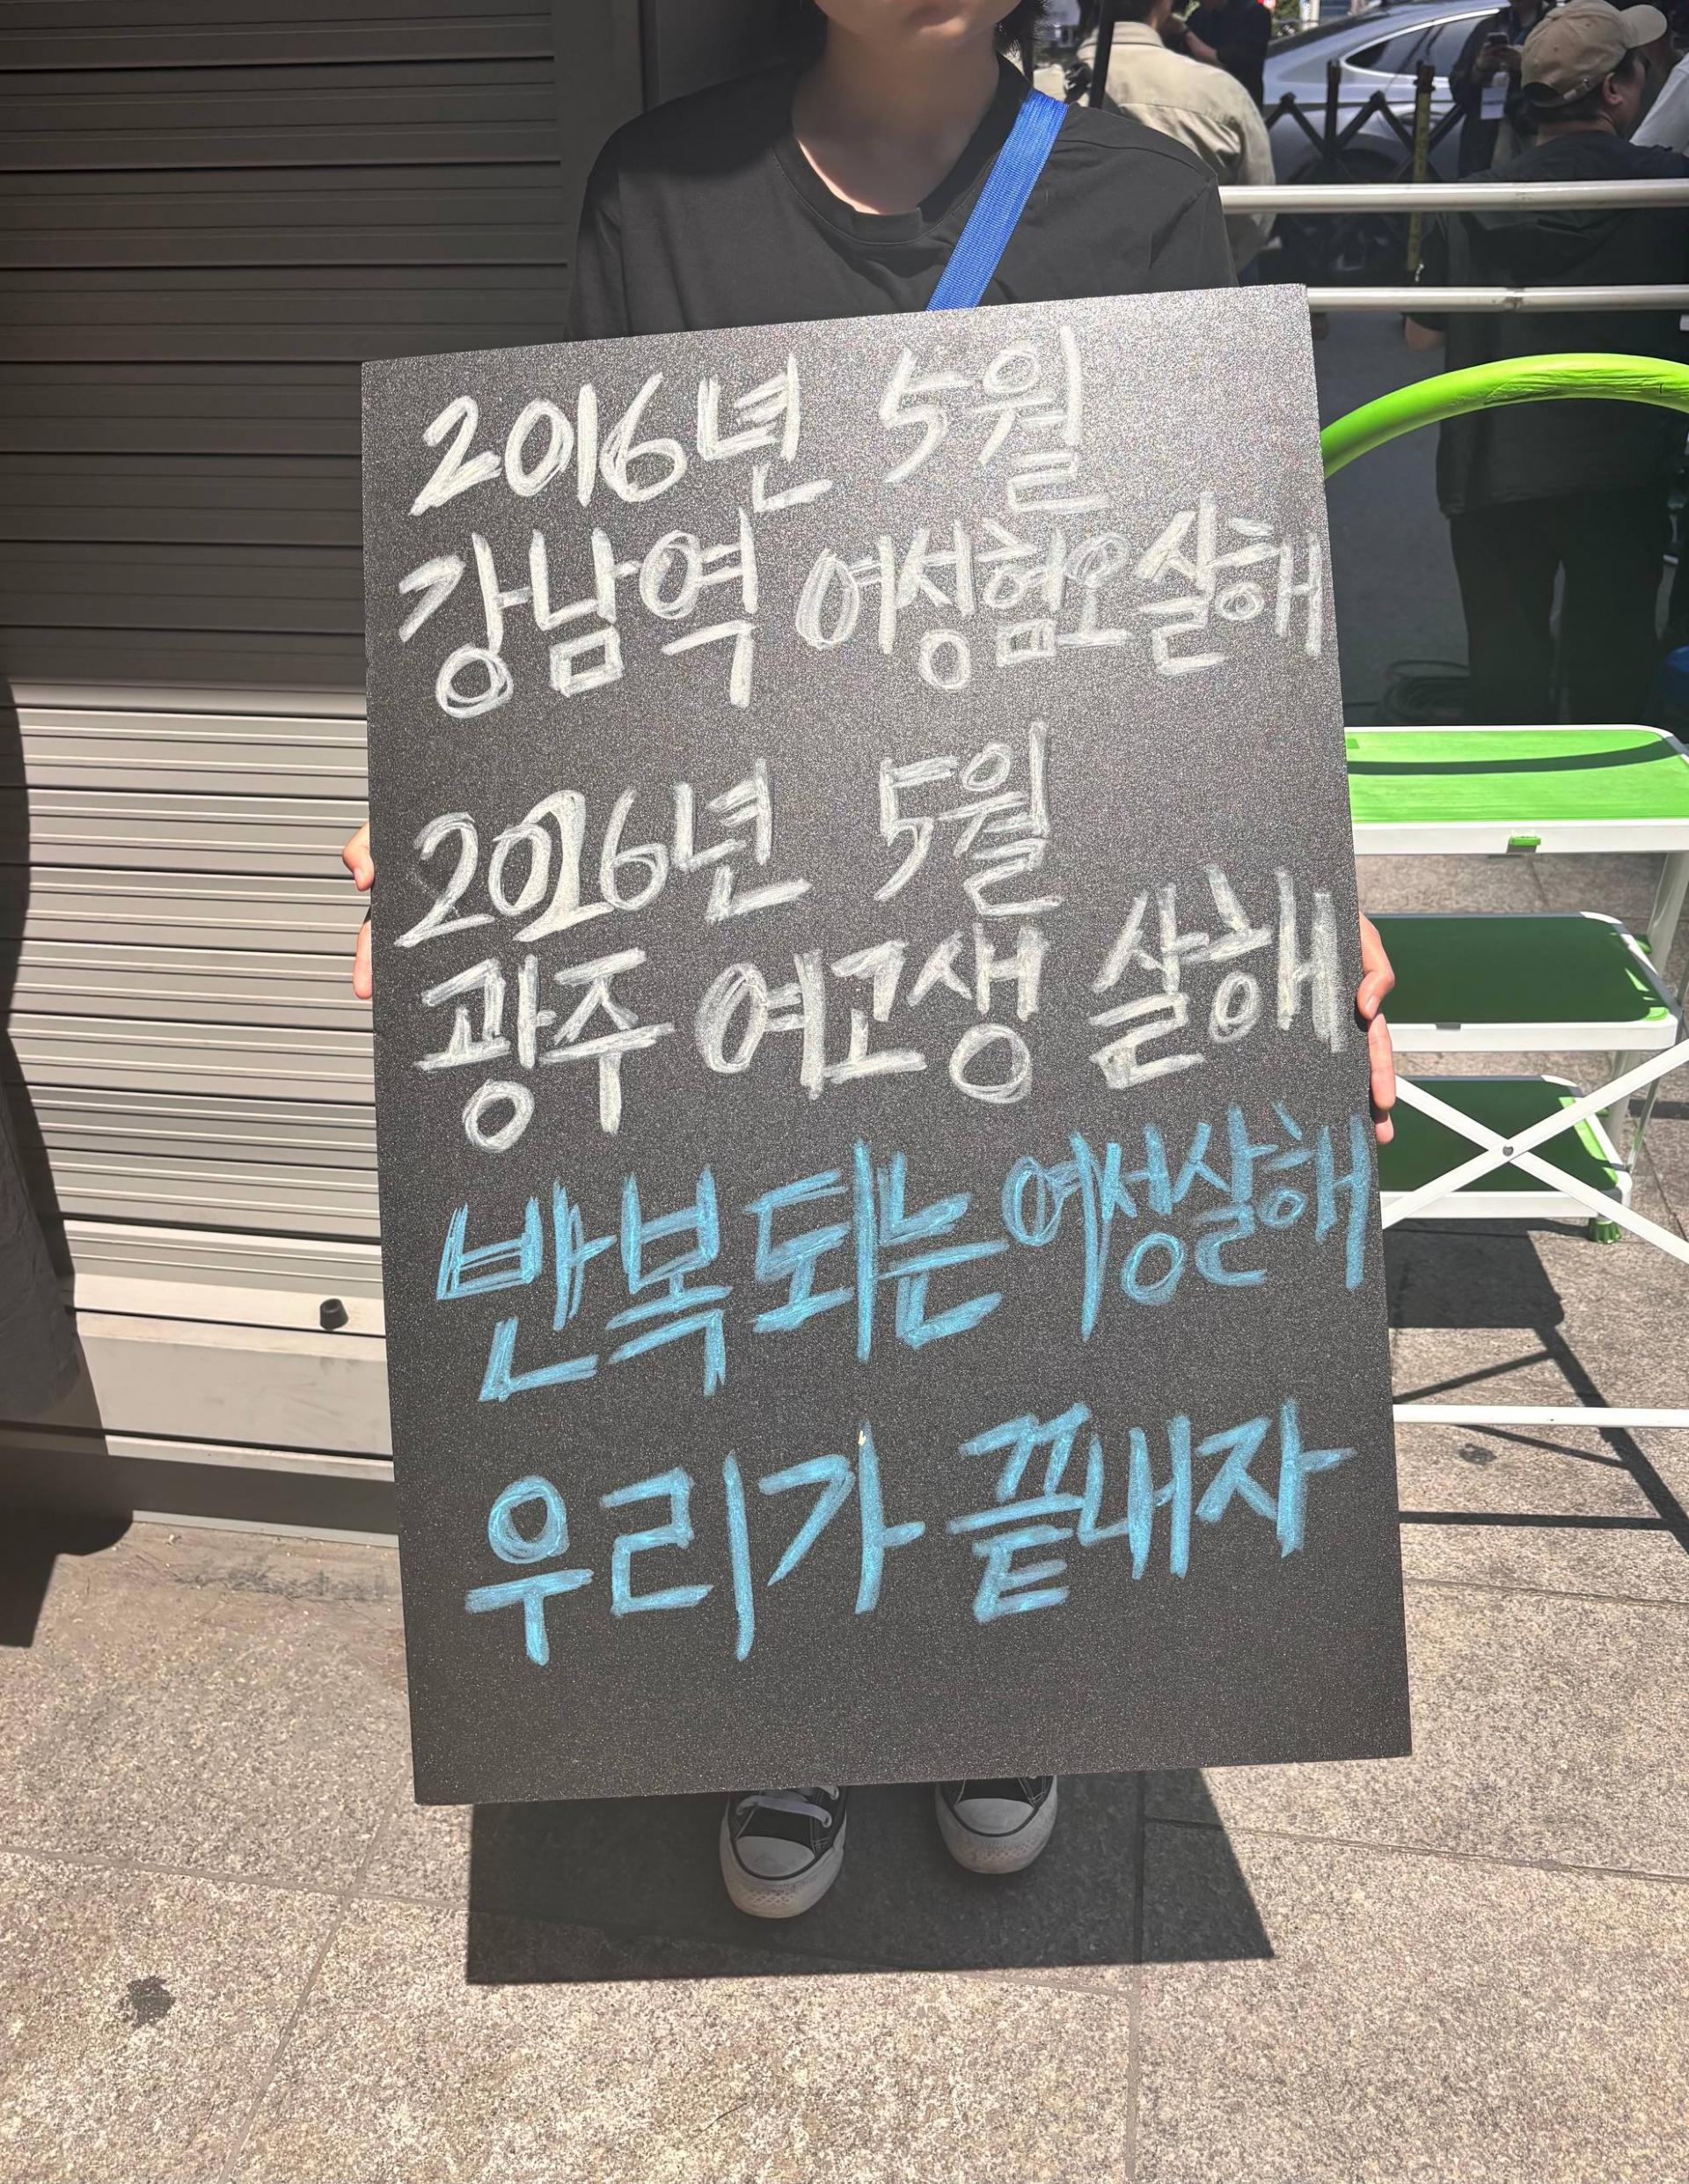 2016년 5월
강남역 여성혐오살해
2026년 5월
광주 여고생 살해
반복되는 여성살해
우리가 끝내자